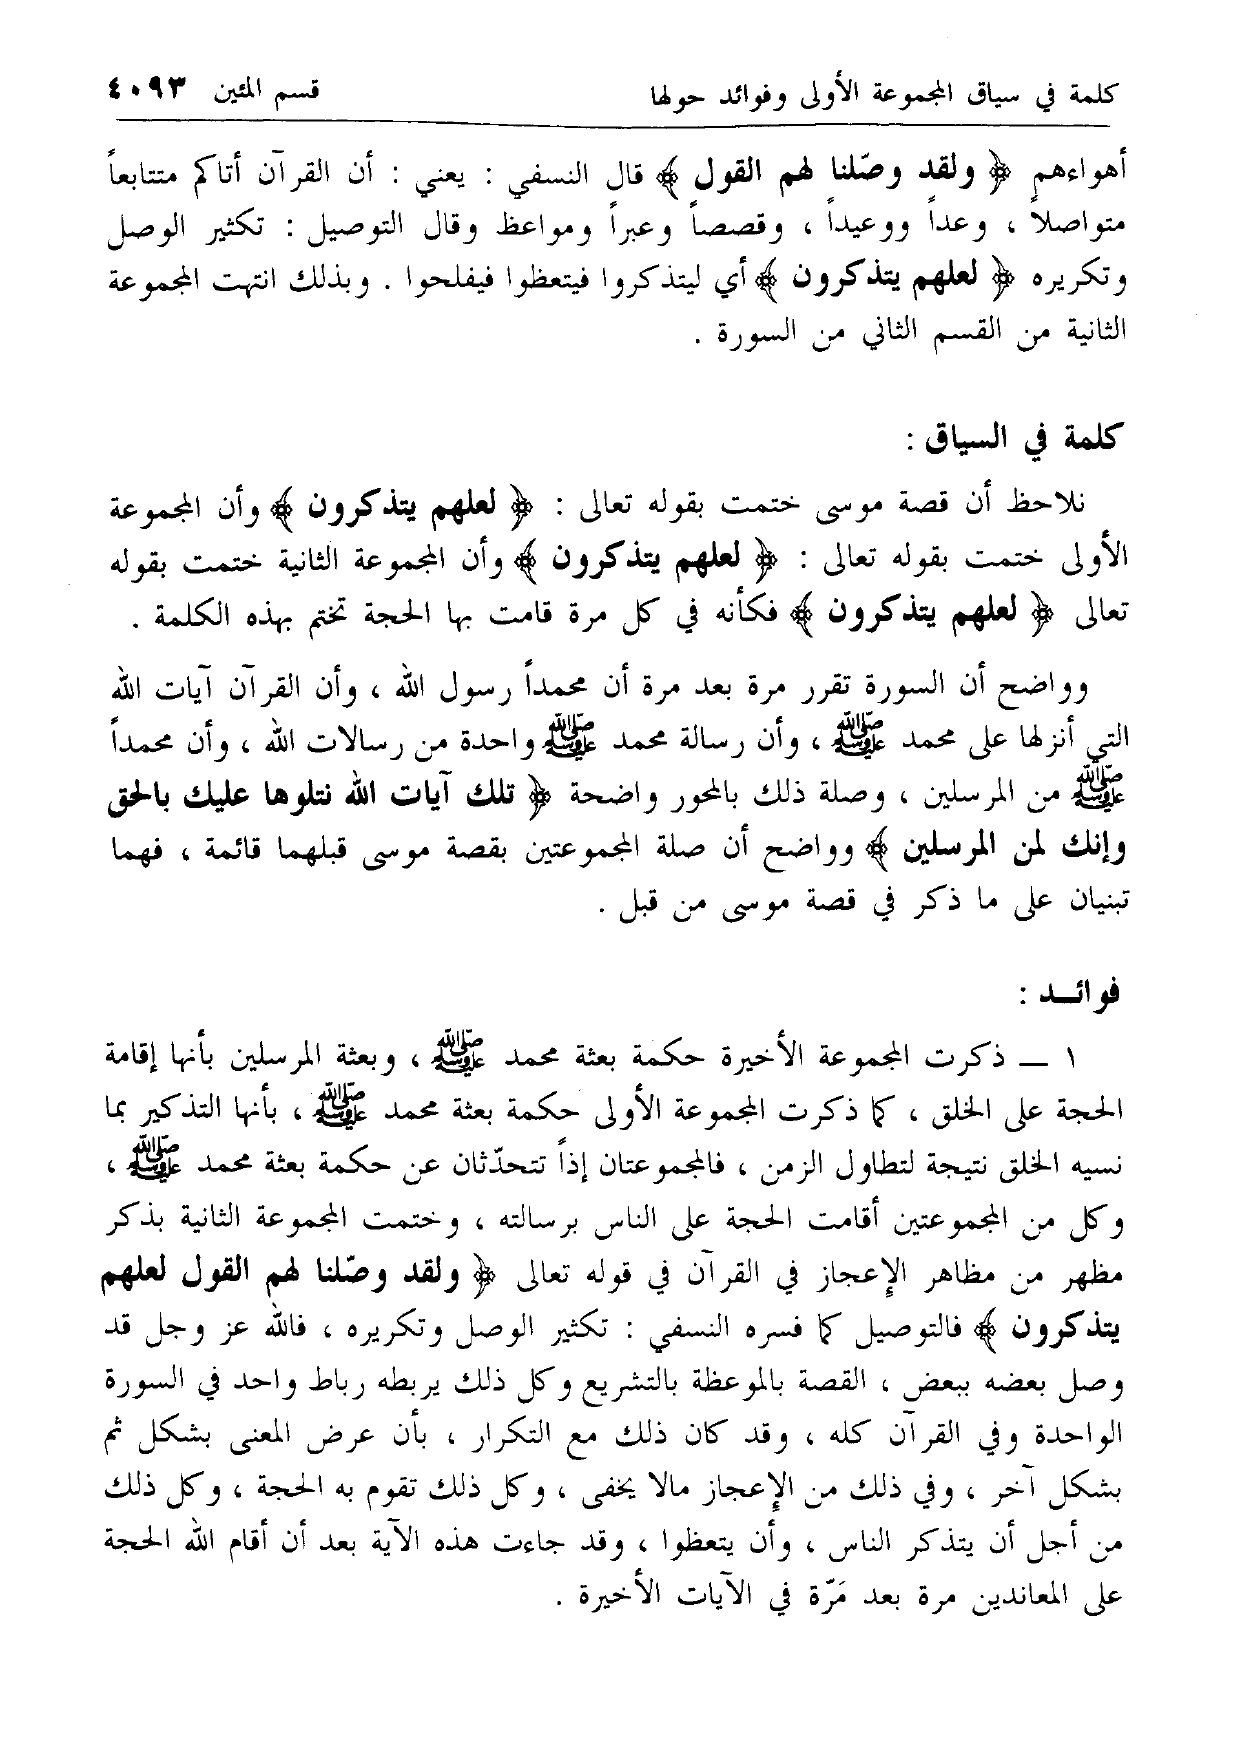 كلمة في سياق المجموعة الأولى وفوائد حولها قسم المئين ٤٠٩٣
أهواءهم ﴿ ولقد وصّلنا لهم القول ﴾ قال النسفي : يعني : أن القرآن أتاكم متتابعاً
متواصلاً ، وعداً ووعيداً ، وقصصاً وعبراً ومواعظ وقال التوصيل : تكثير الوصل
وتكريره ﴿ لعلهم يتذكرون ﴾ أي ليتذكروا فيتعظوا فيفلحوا . وبذلك انتهت المجموعة
الثانية من القسم الثاني من السورة .
كلمة في السياق :
نلاحظ أن قصة موسى ختمت بقوله تعالى : ﴿ لعلهم يتذكرون ﴾ وأن المجموعة
الأولى ختمت بقوله تعالى : ﴿ لعلهم يتذكرون ﴾ وأن المجموعة الثانية ختمت بقوله
تعالى ﴿ لعلهم يتذكرون ﴾ فكأنه في كل مرة قامت بها الحجة تختم بهذه الكلمة .
وواضح أن السورة تقرر مرة بعد مرة أن محمداً رسول الله ، وأن القرآن آيات الله
التي أنزلها على محمد ﷺ ، وأن رسالة محمد ﷺ واحدة من رسالات الله ، وأن محمداً
ﷺ من المرسلين ، وصلة ذلك بالمحور واضحة ﴿ تلك آيات الله نتلوها عليك بالحق
وإنك لمن المرسلين ﴾ وواضح أن صلة المجموعتين بقصة موسى قبلهما قائمة ، فهما
تبنيان على ما ذكر في قصة موسى من قبل .
فوائـد :
١ ــ ذكرت المجموعة الأخيرة حكمة بعثة محمد ﷺ ، وبعثة المرسلين بأنها إقامة
الحجة على الخلق ، كما ذكرت المجموعة الأولى حكمة بعثة محمد ﷺ ، بأنها التذكير بما
نسيه الخلق نتيجة لتطاول الزمن ، فالمجموعتان إذاً تتحدّثان عن حكمة بعثة محمد ﷺ ،
وكل من المجموعتين أقامت الحجة على الناس برسالته ، وختمت المجموعة الثانية بذكر
مظهر من مظاهر الإعجاز في القرآن في قوله تعالى ﴿ ولقد وصّلنا لهم القول لعلهم
يتذكرون ﴾ فالتوصيل كما فسره النسفي : تكثير الوصل وتكريره ، فالله عز وجل قد
وصل بعضه ببعض ، القصة بالموعظة بالتشريع وكل ذلك يربطه رباط واحد في السورة
الواحدة وفي القرآن كله ، وقد كان ذلك مع التكرار ، بأن عرض المعنى بشكل ثم
بشكل آخر ، وفي ذلك من الإعجاز مالا يخفى ، وكل ذلك تقوم به الحجة ، وكل ذلك
من أجل أن يتذكر الناس ، وأن يتعظوا ، وقد جاءت هذه الآية بعد أن أقام الله الحجة
على المعاندين مرة بعد مَرّة في الآيات الأخيرة .